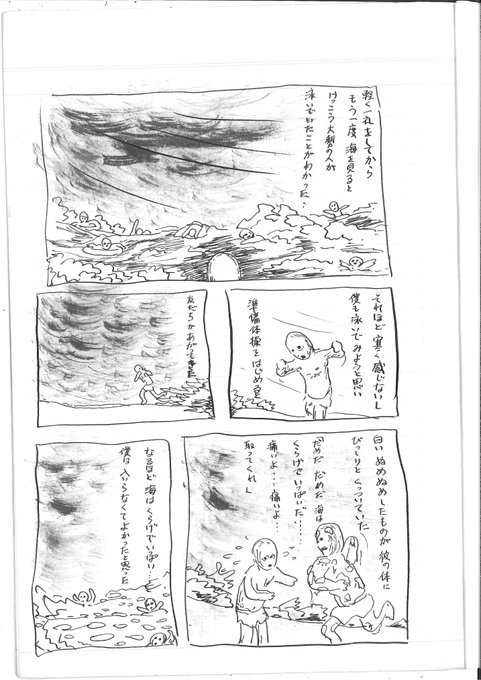 軽く一礼をしてから
もう一度 海を見ると
けっこう大勢の人が
泳いでいたことがわかった…
それほど 寒く感じないし
僕も泳いでみようと思い
準備体操をはじめると
友だちがあがってきた
白いぬめぬめしたものが 彼の体に
びっしりと くっついていた
「だめだ だめだ 海は
くらげでいっぱいだ……
痛いよ…痛いよ…
取ってくれ」
なるほど 海は くらげでいっぱい…
僕は 入らなくてよかったと思った